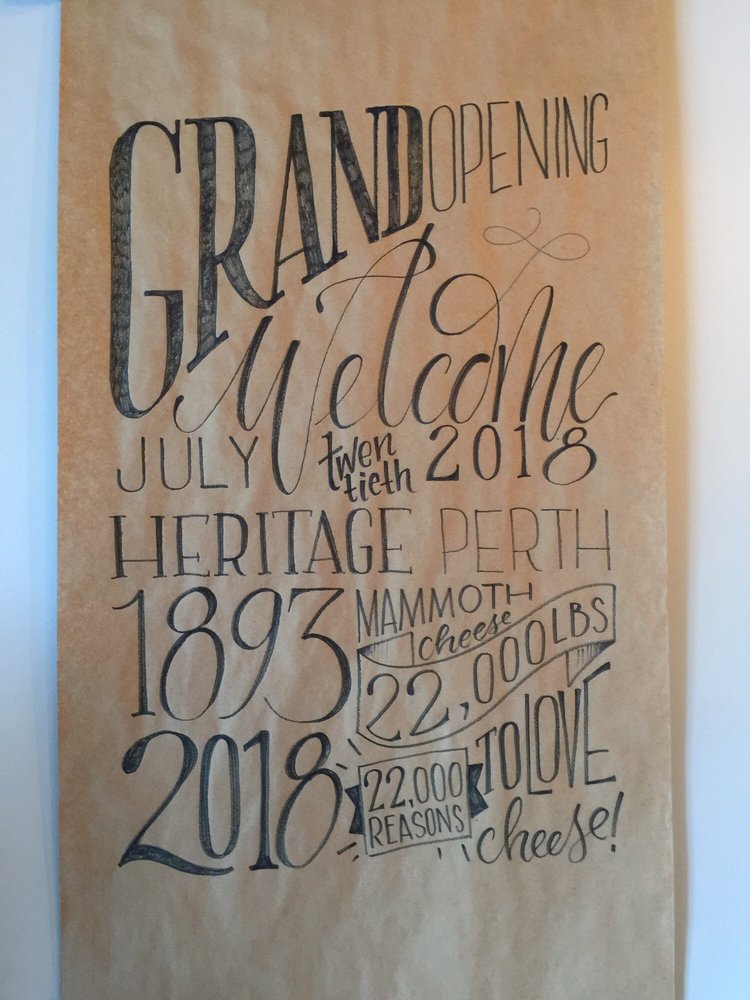 GRAND OPENING
Welcome
JULY twentieth 2018
HERITAGE PERTH
1893 MAMMOTH cheese 22,000 LBS
2018 22,000 REASONS TO LOVE cheese!